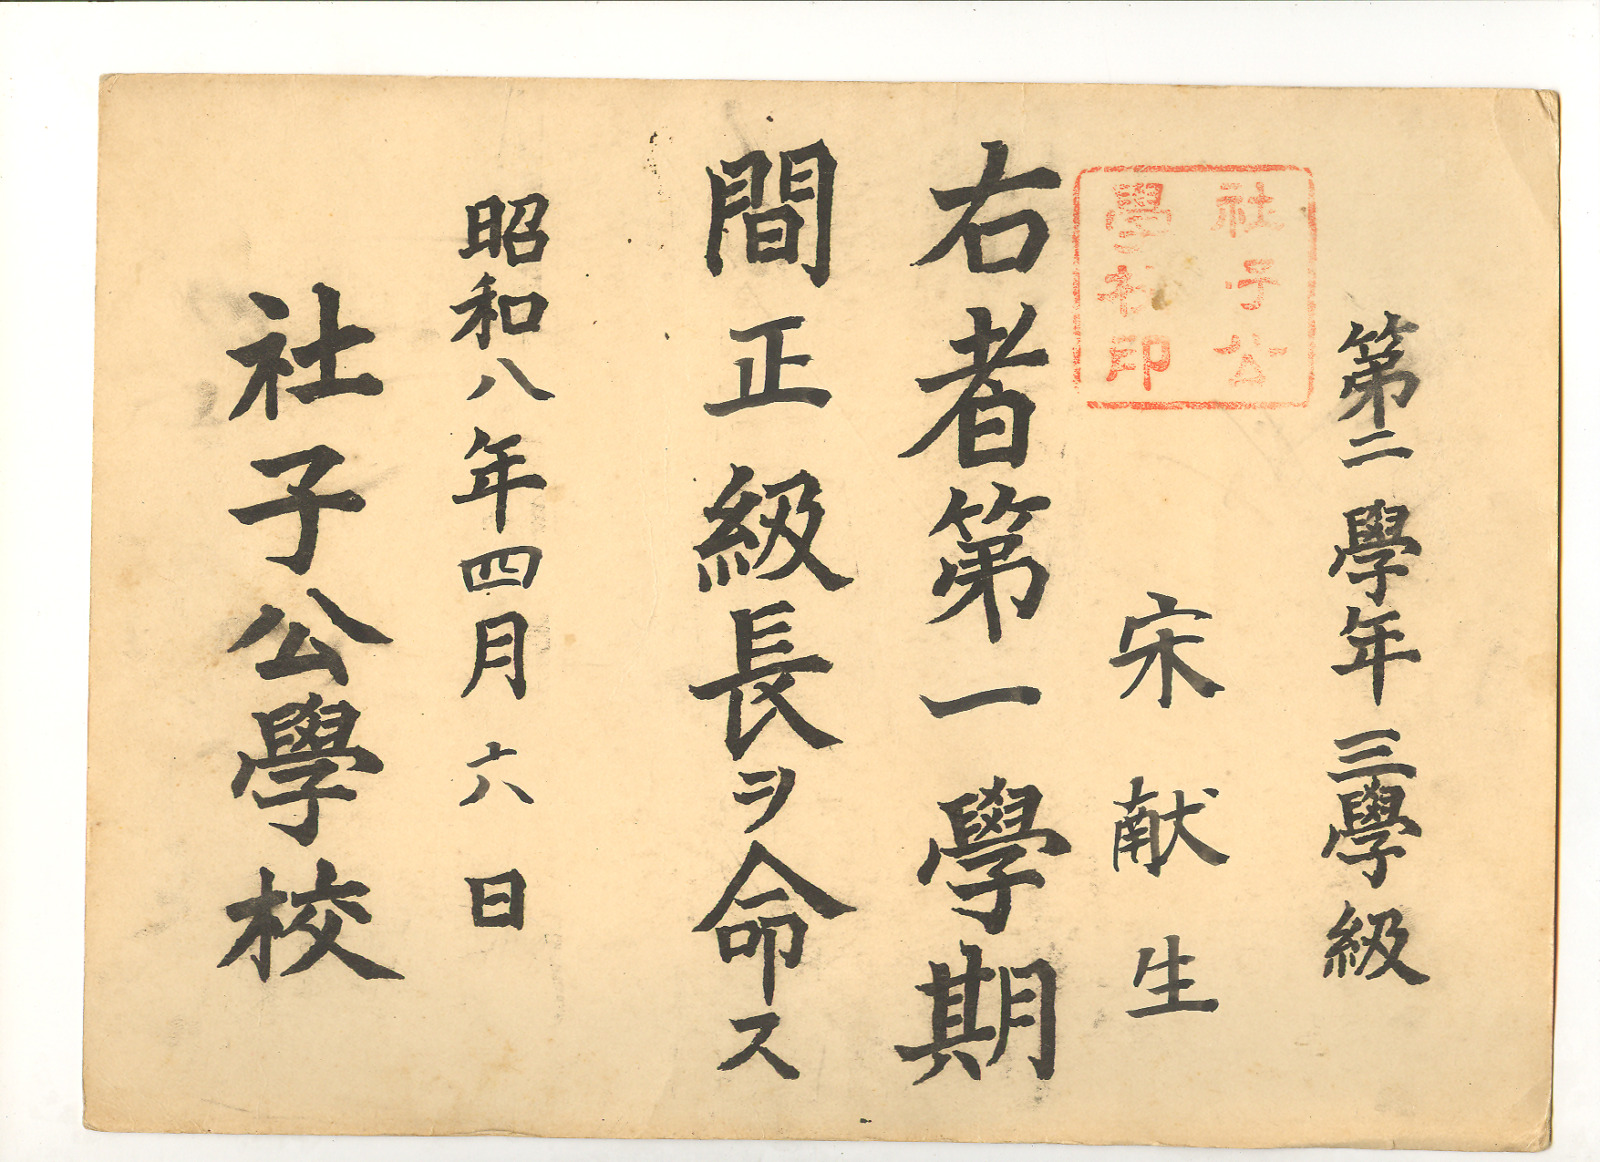 第二學年三學級
宋献生
社子公
學校印
右者第一學期
間正級長ヲ命ス
昭和八年四月六日
社子公學校